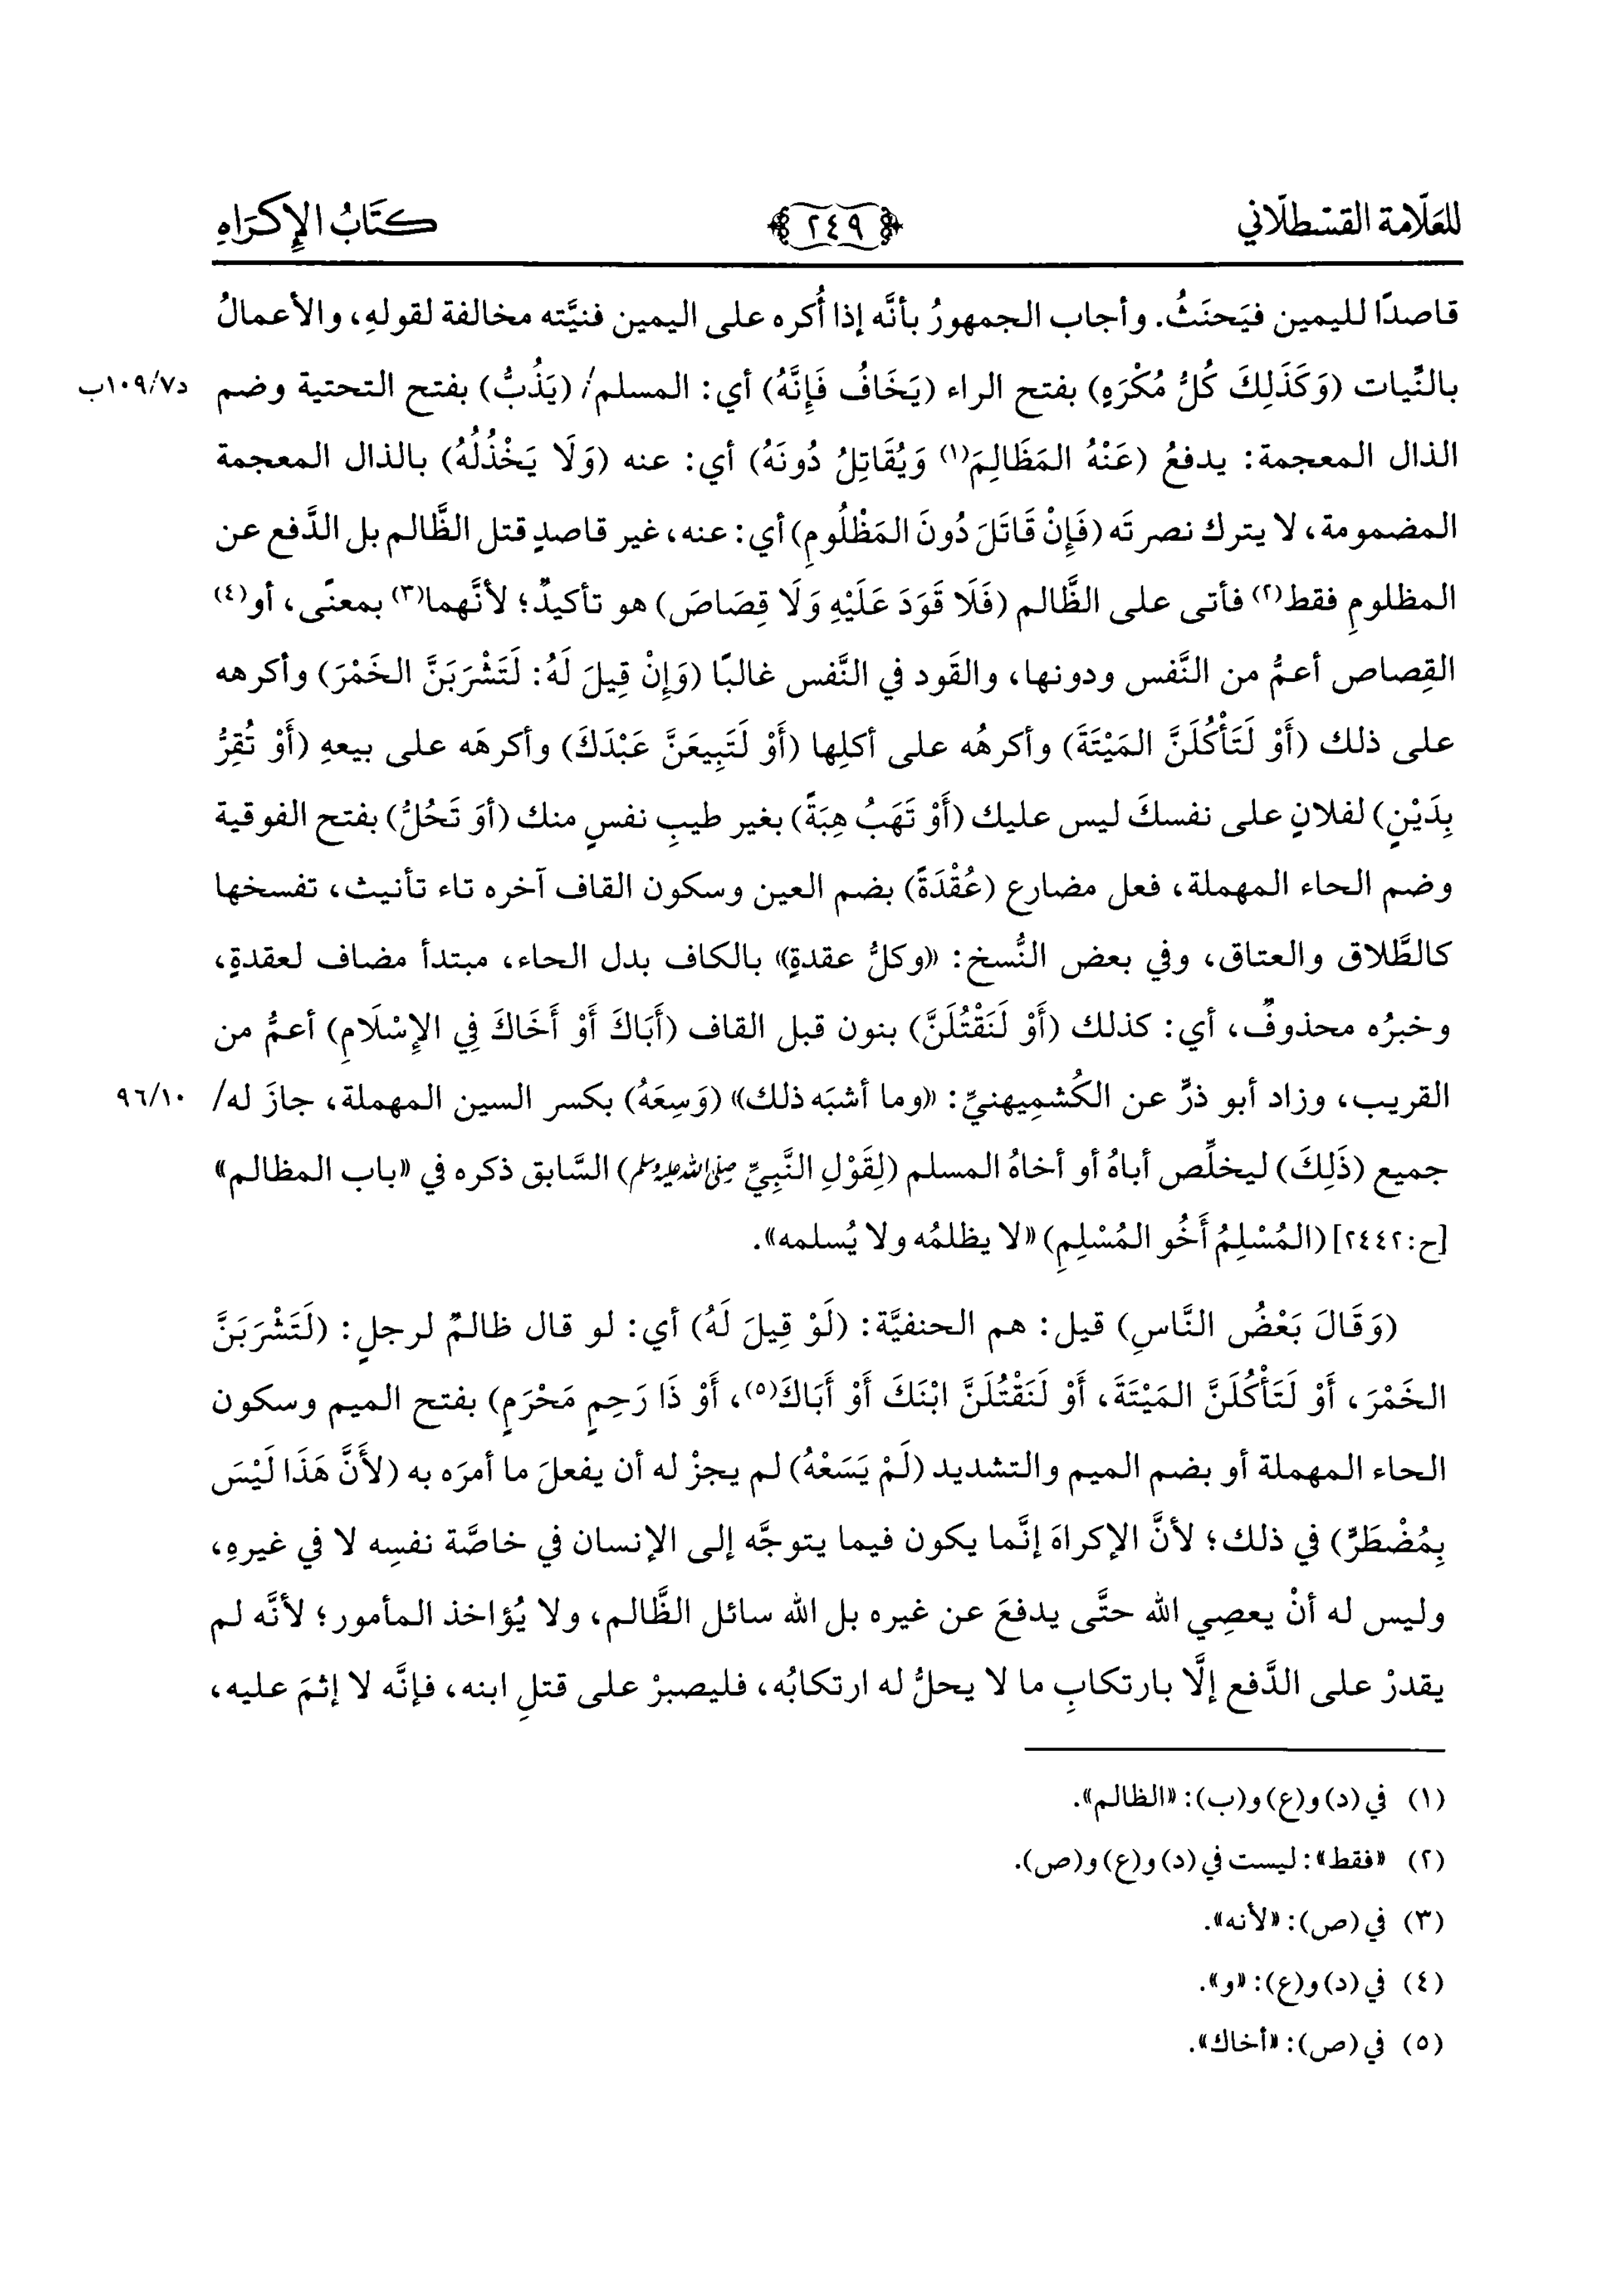 للعلّامة القسطلّاني ٢٤٩ كتَابُ الإِكرَاهِ
قاصدًا لليمين فيَحنَثُ. وأجاب الجمهورُ بأنَّه إذا أُكره على اليمين فنيَّته مخالفة لقولهِ، والأعمالُ
بالنِّيات (وَكَذَلِكَ كُلُّ مُكْرَهٍ) بفتح الراء (يَخَافُ فَإِنَّهُ) أي: المسلم/ (يَذُبُّ) بفتح التحتية وضم د١٠٩/٧ب
الذال المعجمة: يدفعُ (عَنْهُ المَظَالِمَ(١) وَيُقَاتِلُ دُونَهُ) أي: عنه (وَلَا يَخْذُلُهُ) بالذال المعجمة
المضمومة، لا يترك نصرتَه (فَإِنْ قَاتَلَ دُونَ المَظْلُومِ) أي: عنه، غير قاصدٍ قتل الظَّالم بل الدَّفع عن
المظلومِ فقط(٢) فأتى على الظَّالم (فَلَا قَوَدَ عَلَيْهِ وَلَا قِصَاصَ) هو تأكيدٌ؛ لأنَّهما(٣) بمعنًى، أو(٤)
القِصاص أعمُّ من النَّفس ودونها، والقَود في النَّفس غالبًا (وَإِنْ قِيلَ لَهُ: لَتَشْرَبَنَّ الخَمْرَ) وأكرهه
على ذلك (أَوْ لَتَأْكُلَنَّ المَيْتَةَ) وأكرهُه على أكلِها (أَوْ لَتَبِيعَنَّ عَبْدَكَ) وأكرهَه على بيعهِ (أَوْ تُقِرُّ
بِدَيْنٍ) لفلانٍ على نفسكَ ليس عليك (أَوْ تَهَبُ هِبَةً) بغير طيبِ نفسٍ منك (أوَ تَحُلُّ) بفتح الفوقية
وضم الحاء المهملة، فعل مضارع (عُقْدَةً) بضم العين وسكون القاف آخره تاء تأنيث، تفسخها
كالطَّلاق والعتاق، وفي بعض النُّسخ: «وكلُّ عقدةٍ» بالكاف بدل الحاء، مبتدأ مضاف لعقدةٍ،
وخبرُه محذوفٌ، أي: كذلك (أَوْ لَنَقْتُلَنَّ) بنون قبل القاف (أَبَاكَ أَوْ أَخَاكَ فِي الإِسْلَامِ) أعمُّ من
القريب، وزاد أبو ذرٍّ عن الكُشمِيهنيِّ: «وما أشبَه ذلك» (وَسِعَهُ) بكسر السين المهملة، جازَ له/ ٩٦/١٠
جميع (ذَلِكَ) ليخلِّص أباهُ أو أخاهُ المسلم (لِقَوْلِ النَّبِيِّ صلى الله عليه وسلم) السَّابق ذكره في «باب المظالم»
[ح:٢٤٤٢] (المُسْلِمُ أَخُو المُسْلِمِ) «لا يظلمُه ولا يُسلمه».
(وَقَالَ بَعْضُ النَّاسِ) قيل: هم الحنفيَّة: (لَوْ قِيلَ لَهُ) أي: لو قال ظالمٌ لرجلٍ: (لَتَشْرَبَنَّ
الخَمْرَ، أَوْ لَتَأْكُلَنَّ المَيْتَةَ، أَوْ لَنَقْتُلَنَّ ابْنَكَ أَوْ أَبَاكَ(٥)، أَوْ ذَا رَحِمٍ مَحْرَمٍ) بفتح الميم وسكون
الحاء المهملة أو بضم الميم والتشديد (لَمْ يَسَعْهُ) لم يجزْ له أن يفعلَ ما أمرَه به (لأَنَّ هَذَا لَيْسَ
بِمُضْطَرٍّ) في ذلك؛ لأنَّ الإكراهَ إنَّما يكون فيما يتوجَّه إلى الإنسان في خاصَّة نفسِه لا في غيرهِ،
وليس له أنْ يعصِي الله حتَّى يدفعَ عن غيره بل الله سائل الظَّالم، ولا يُؤاخذ المأمور؛ لأنَّه لم
يقدرْ على الدَّفع إلَّا بارتكابِ ما لا يحلُّ له ارتكابُه، فليصبرْ على قتلِ ابنه، فإنَّه لا إثمَ عليه،
(١) في (د) و(ع) و(ب): «الظالم».
(٢) «فقط»: ليست في (د) و(ع) و(ص).
(٣) في (ص): «لأنه».
(٤) في (د) و(ع): «و».
(٥) في (ص): «أخاك».